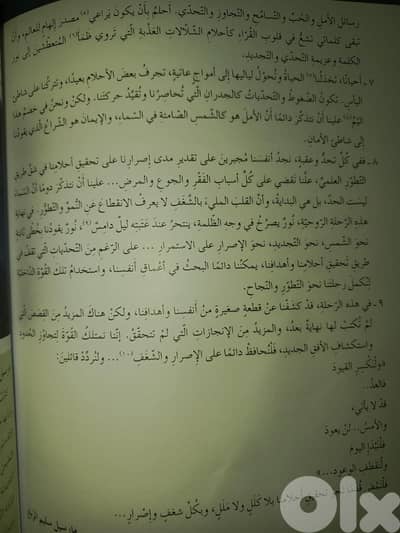 رسائل الأمل والحُبّ والتّسامُح والتّجاوز والتّحدّي. أحلمُ بأنْ يكون يَراعي (٥) مصدر إلهام للعالم، وأن
تبقى كلماتي تشعّ في قلوب القُرّاء كأحلام الشّلالات العَذْبة الّتي تروي ظمَأ (٦) المُتعطّشين إلى نور
الكلمة وعزيمة التّحدّي والتّجديد.
٧ ـ أحيانًا، تخذلُنا (٧) الحياةُ وتُحوّلُ لياليها إلى أمواجٍ عاتيةٍ، تجرفُ بعضَ الأحلام بعيدًا، وتترُكنا على شاطئ
اليأس. تكون الضّغوطُ والتّحدّيات كالجدران الّتي تُحاصِرُنا وتُقيّد حركتنا. ولكنْ ونحن في خضمّ هذا
اليَمّ (٨) علينا أنْ نتذكّر دائمًا أنّ الأملَ هو كالشّمس الصّامتة في السّماء، والإيمان هو الشّراعُ الّذي يقودُنا
إلى شاطئ الأمان.
٨ ـ ففي كلّ تحدٍّ وعقبة، نجدُ أنفسَنا مُجبرينَ على تقدير مدى إصرارنا على تحقيق أحلامنا في
التّطوّر العلميّ، علّنا نقضي على كلّ أسباب الفَقْر والجوع والمرض... علينا أنْ نتذكّر دومًا أنّ
ليست الحدّ، بل هي البدايةُ، وأنّ القلبَ المليءَ بالشّغف لا يعرفُ الانقطاعَ عن النّموّ والتّطوّر. في نهاية
هذه الرّحلة الرّوحيّة، نُورٌ يصرُخُ في وجه الظّلمة، ينتحرُ عند عَتَبَتِه ليلٌ دامسٌ (٩)، نُورٌ يقودُنا بخُطًى ثابتة
نحوَ الشّمس، نحوَ التّجديد، نحوَ الإصرار على الاستمرار... على الرّغم مِنَ التّحدّيات الّتي تقفُ في
طريق تَحقيق أحلامنا وأهدافنا، يمكنُنا دائمًا البحثُ في أعماق أنفسنا، واستخدامُ تلك القُوّة الدّاخليّة
لنُكمل رحلتنا نحوَ التّطوّر والنّجاح.
٩ ـ في هذه الرّحلة، قد كشَفْنا عنْ قطعةٍ صغيرةٍ منْ أنفسِنا وأهدافنا، ولكنْ هناكَ المزيدُ مِنَ القصَص الّتي
لمْ تُكتبْ لها نهايةٌ بعدُ، والمزيدُ مِنَ الإنجازات الّتي لمْ تتحقّقْ. إنّنا نمتلكُ القُوّةَ لتجاوُز الحُدود
واستكشافِ الأفق الجديد، فلْنُحافظْ دائمًا على الإصرار والشّغَفِ (١٠)... ولنُردّدْ قائلينَ:
«ولْتنكسِرِ القيودَ
فالغدُ...
قدْ لا يأتي،
والأمسُ... لنْ يعودَ
فلْنَبْدإ اليومَ
ولْنقطفِ الوعود...»
بلا كَلَلٍ ولا مَلَلٍ، وبكُلّ شغفٍ وإصْرارٍ...
olx